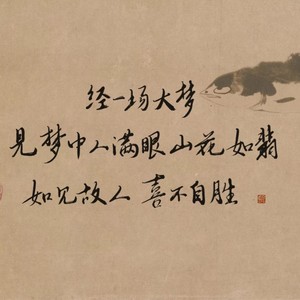 经一场大梦
見梦中人满眼山花如翡
如见故人 喜不自胜